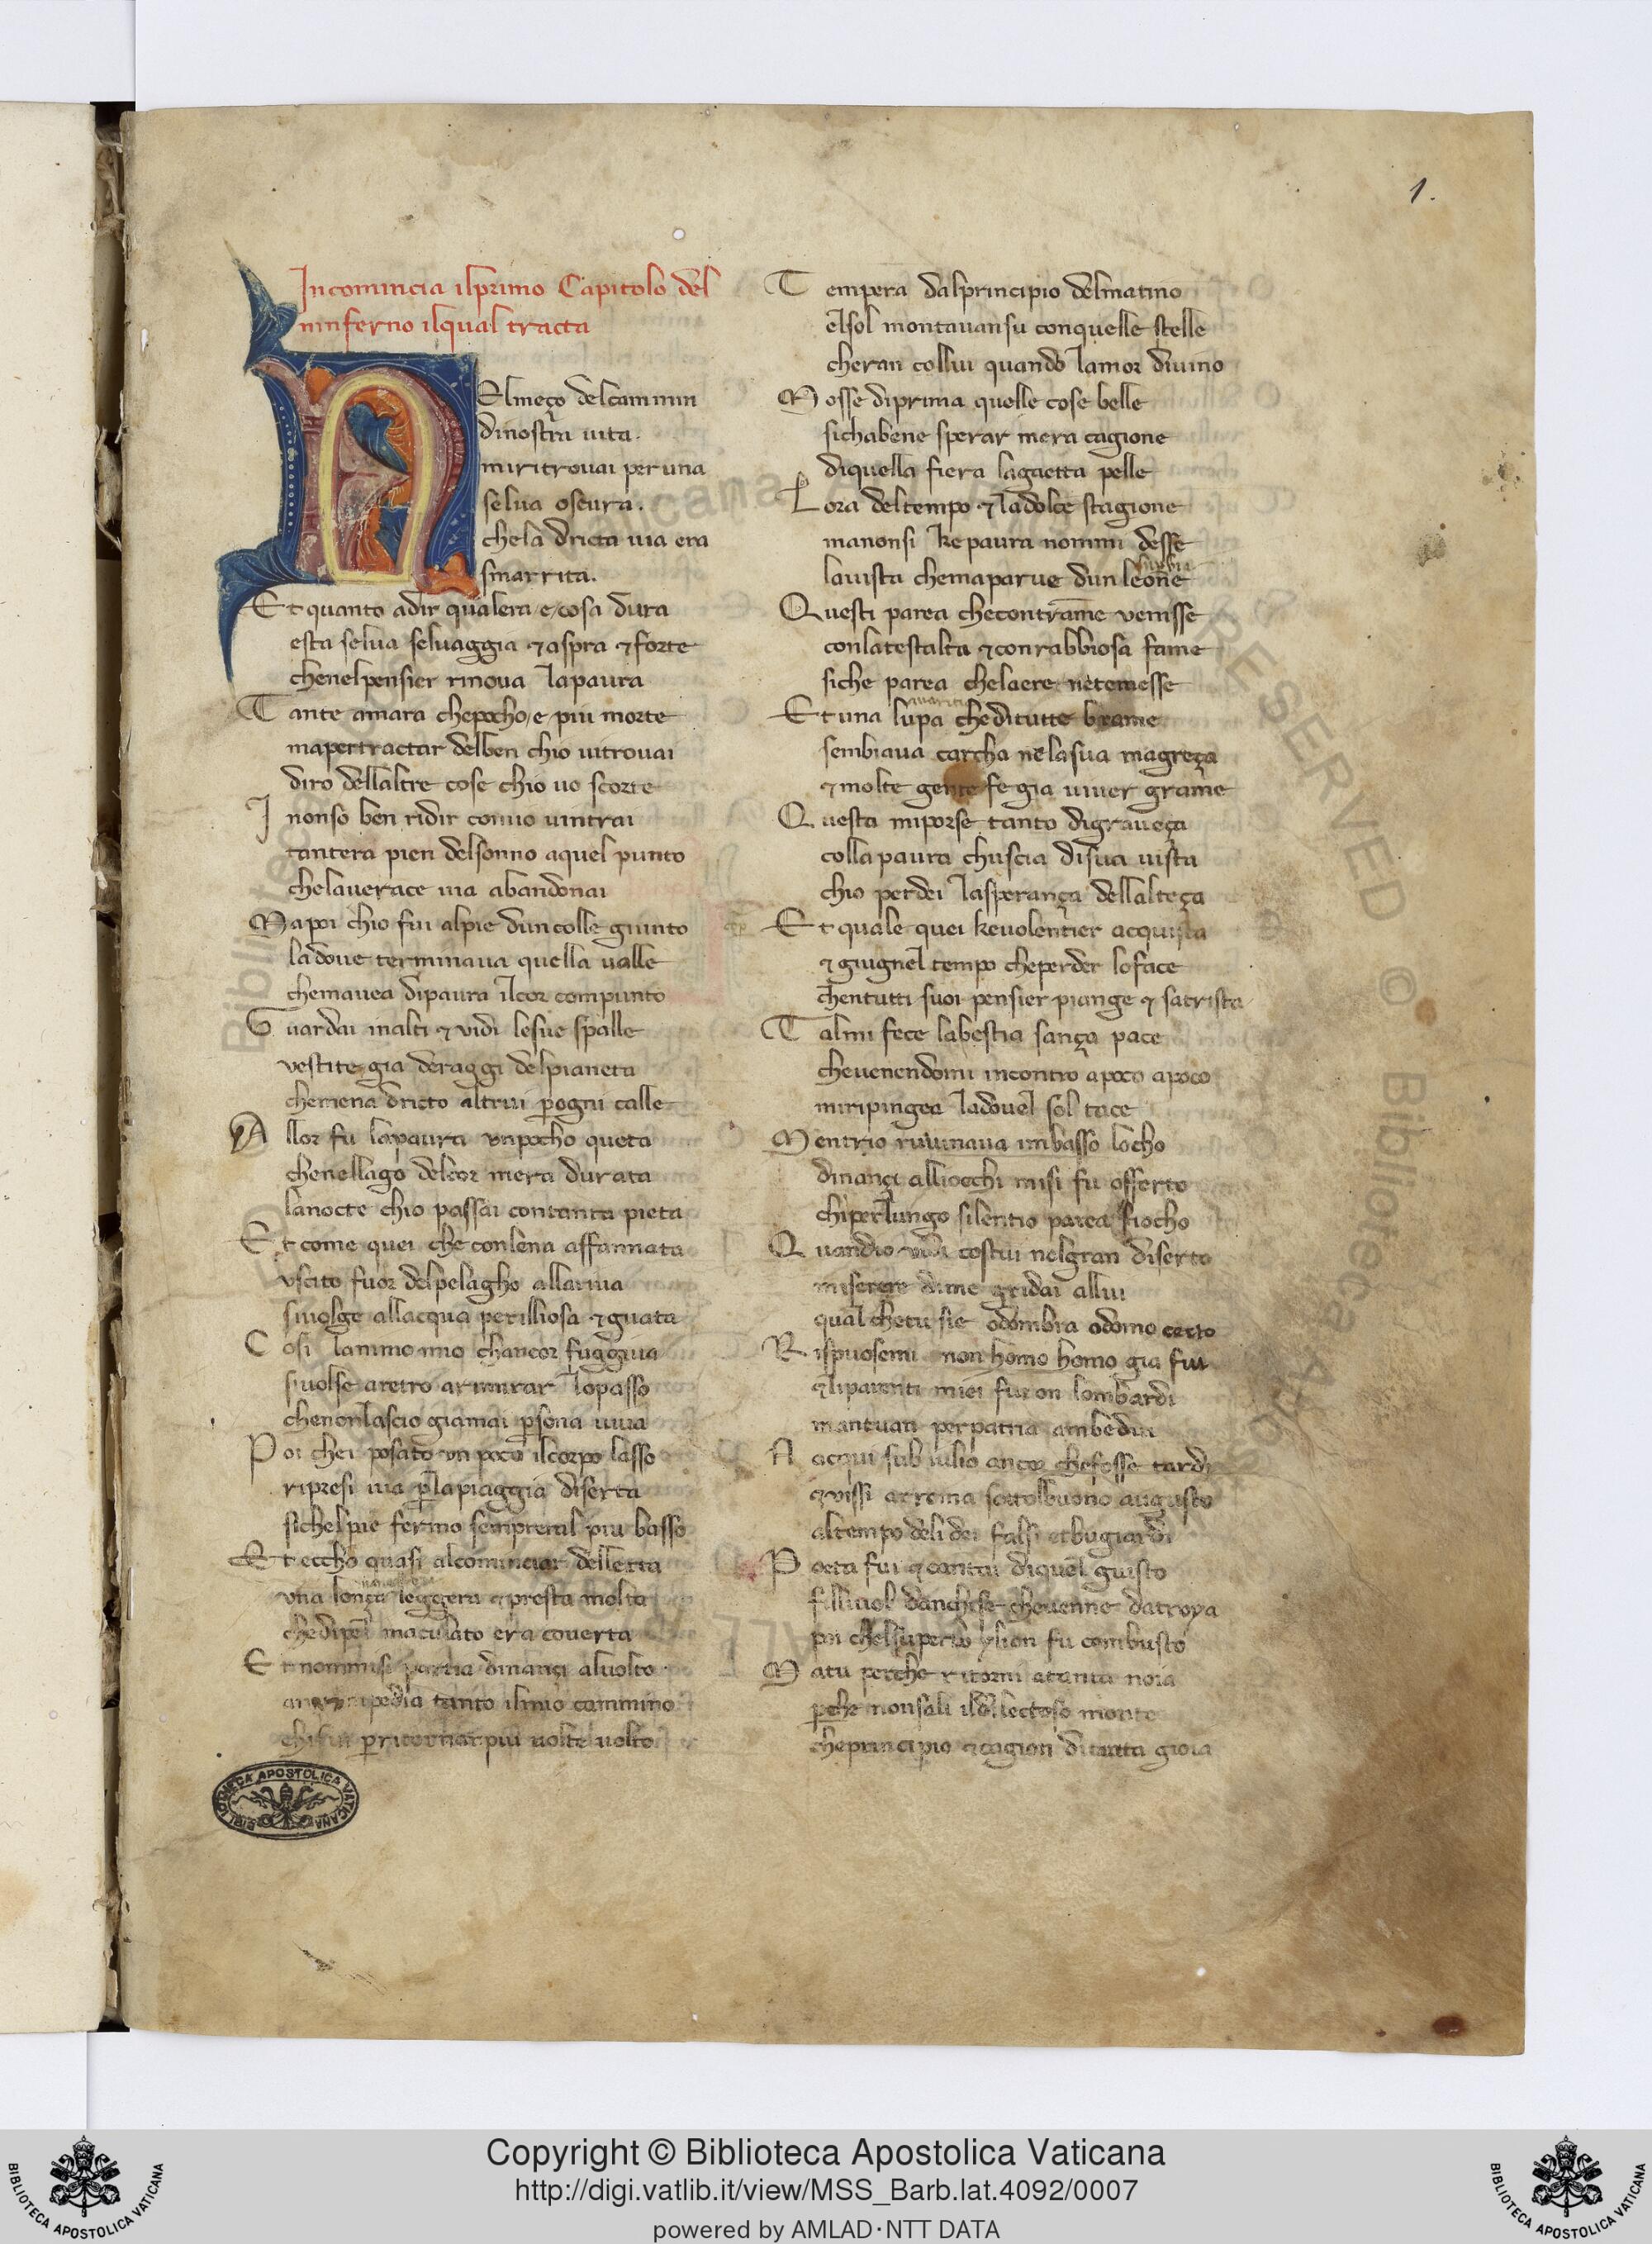 1.
Incomincia ilprimo Capitolo del
ninferno ilqual tracta
NElmeço delcammin
dinostra uita.
miritrouai peruna
selua oscura.
chela dricta uia era
smarrita.
Et quanto adir qualera /e/ cosa dura
esta selua seluaggia ⁊ aspra ⁊ forte
chenelpensier rinoua lapaura
Tante amara chepocho /e/ piu morte
mapertractar delben chio uitrouai
diro dellaltre cose chio uo scorte
I nonso ben ridir comio uintrai
tantera pien delsonno aquel punto
chelauerace uia abandonai
Mapoi chio fui alpie duncolle giunto
ladoue terminaua quella ualle
chemauea dipaura ilcor compunto
Guardai inalti ⁊ vidi lesue spalle
vestite gia deraggi delpianeta
chemena dricto altrui ꝑogni calle
Allor fu lapaura vnpocho queta
chenellago delcor mera durata
lanocte chio passai contanta pieta
Et come quei che conlena affannata
vscito fuor delpelagho allariua
siuolge allacqua perilliosa ⁊ guata
Cosi lanimo mio chancor fuggiua
siuolse aretro arimirar lopasso
chenonlascio giamai ꝑsona uiua
Poi chei posato vn poco ilcorpo lasso
ripresi uia ꝑlapiaggia diserta
sichelpie fermo sempreral piu basso
Et eccho quasi alcominciar dellerta
vna lonça leggera ⁊ presta molto
chedipel maculato era couerta
Et nonmisi partia dinançi aluolto
tanto ilmio cammino
ꝑritornar piu uolte uolto
Tempera dalprincipio delmatino
elsol montauansu conquelle stelle
cheran collui quando lamor diuino
Mosse diprima quelle cose belle
sichabene sperar mera cagione
diquella fiera lagaetta pelle
Lora deltempo ⁊ ladolce stagione
manonsi ke paura nonmi desse
lauista chemaparue dun leone
Questi parea checontrame venisse
conlatestalta ⁊ conrabbiosa fame
siche parea chelaere netemesse
Et una lupa cheditutte brame
sembiaua carcha nelasua magreça
⁊ molte gente fe gia uiuer grame
Questa miporse tanto digraueça
colla paura chuscia disua uista
chio perdei lasperança dellalteça
Et quale quei keuolentier acquista
⁊ giugnel tempo cheperder loface
chentutti suoi pensier piange ⁊ satrista
Talmi fece labestia sança pace
cheuenendomi incontro apoco apoco
miripingea ladouel sol tace
Mentrio ruuinaua imbasso locho
dinançi alliocchi misi fu offerto
chiperlungo silentio parea fiocho
Quandio uidi costui nelgran diserto
miserere dime gridai allui
qual chetu sie odombra odomo certo
Rispuosemi non homo homo gia fui
⁊liparenti miei furon lombardi
mantuan perpatria ambedui
Nacqui sub iulio ancor chefosse tardi
⁊vissi arroma sottolbuono augusto
altempo deli dei falsi etbugiardi
Poeta fui ⁊ cantai diquel giusto
filliuol danchise cheuenne datroya
poi chelsuperbo ylion fu combusto
Matu perche ritorni atanta noia
ꝑche nonsali ildilectoso monte
cheprincipio ⁊ cagion ditanta gioia
BIBLIOTECA APOSTOLICA VATICANA
Copyright © Biblioteca Apostolica Vaticana
http://digi.vatlib.it/view/MSS_Barb.lat.4092/0007
powered by AMLAD·NTT DATA
BIBLIOTECA APOSTOLICA VATICANA
BIBLIOTECA APOSTOLICA VATICANA